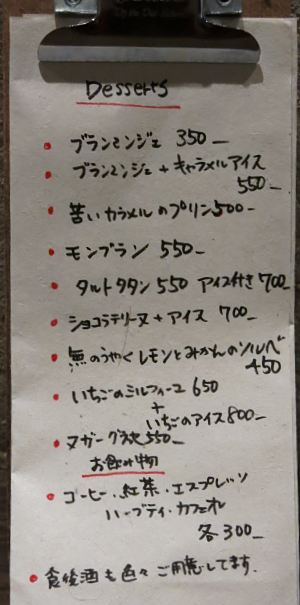 Desserts
・ブランマンジェ 350_
・ブランマンジェ + キャラメルアイス
550_
・苦いカラメルのプリン500_
・モンブラン 550_
・タルトタタン 550 アイス付き 700_
・ショコラテリーヌ + アイス 700_
・無のうやくレモンとみかんのソルベ
450
・いちごのミルフィーユ 650
+
いちごのアイス 800_
・ヌガーグラッセ 550_
お飲み物
・コーヒー・紅茶・エスプレッソ
ハーブティ・カフェオレ
各300_
・食後酒も色々ご用意してます.